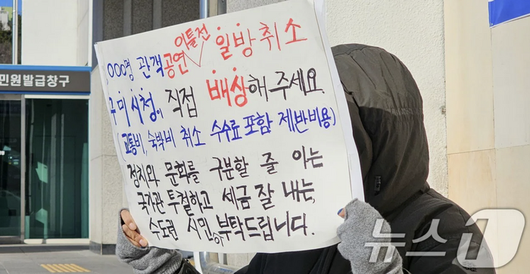 민원발급창구
이틀전
000명 관객 공연 일방취소
구미시청, 직접 배상해 주세요.
(교통비, 숙박비 취소 수수료 포함 제반비용)
정치와 문화를 구분할 줄 아는
국가관 투철하고 세금 잘 내는,
수도권 시민 부탁드립니다.
뉴스1